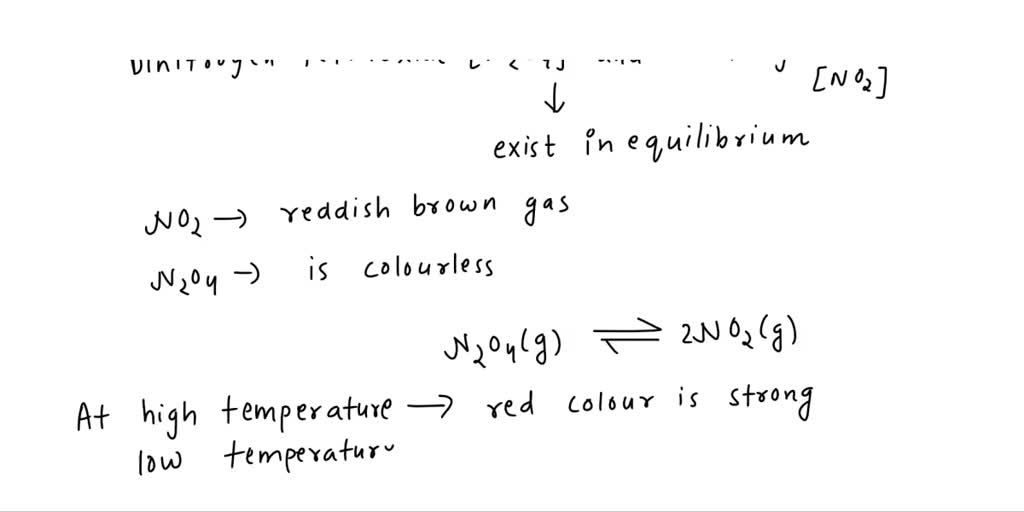 [NO₂]
↓
exist in equilibrium
NO₂ → reddish brown gas
N₂O₄ → is colourless
N₂O₄(g) ⇌ 2NO₂(g)
At high temperature → red colour is strong
low temperature